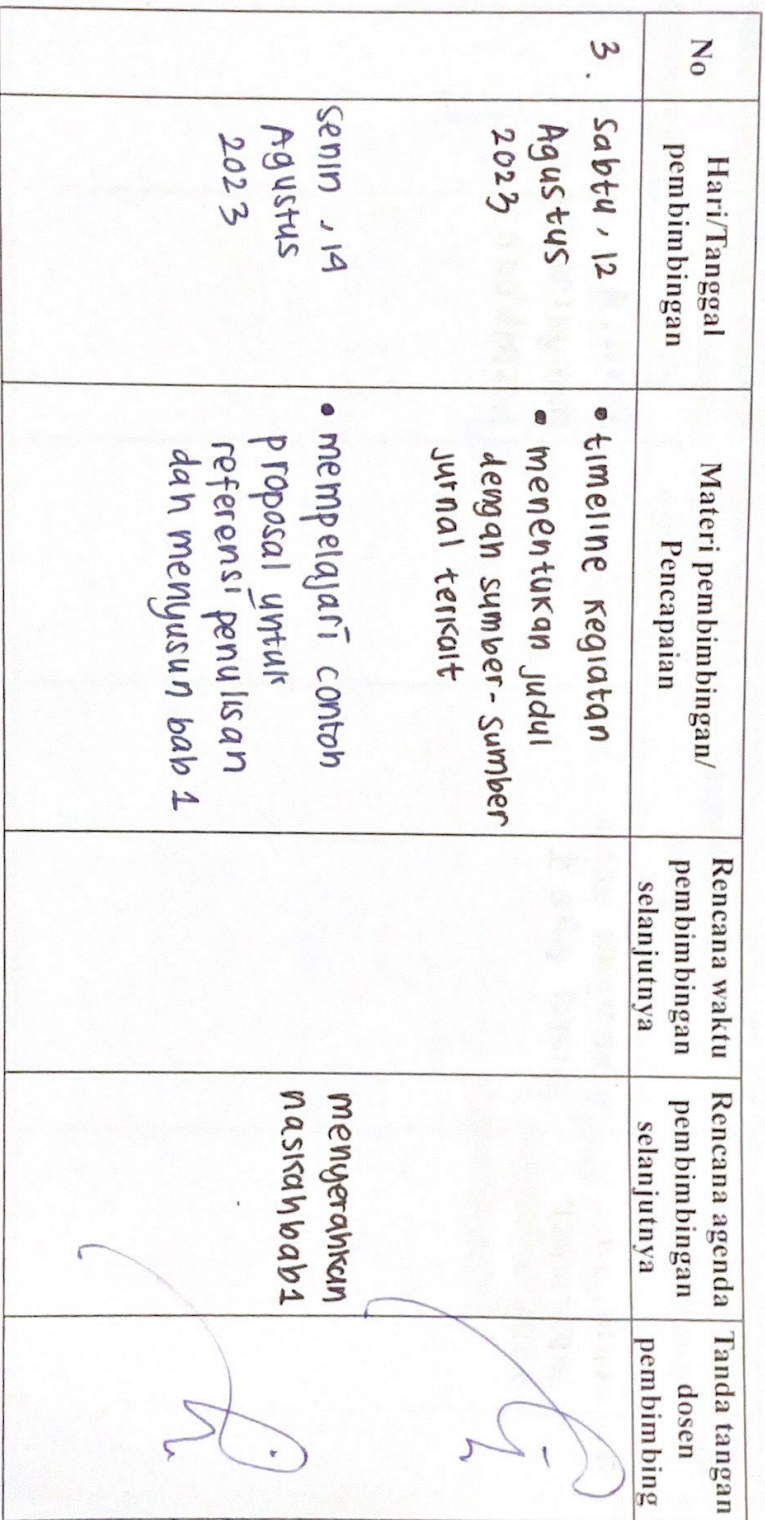 No
Hari/Tanggal
pembimbingan
Materi pembimbingan/
Pencapaian
Rencana waktu
pembimbingan
selanjutnya
Rencana agenda
pembimbingan
selanjutnya
Tanda tangan
dosen
pembimbing
3.
Sabtu, 12
Agustus
2023
• timeline kegiatan
• menentukan judul
dengan sumber-sumber
jurnal terkait
Senin, 14
Agustus
2023
• mempelajari contoh
proposal untuk
referensi penulisan
dan menyusun bab 1
menyerahkan
naskah bab 1